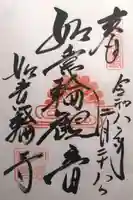 奉拝
令和六年二月二十八日
如意輪観音
如意輪寺